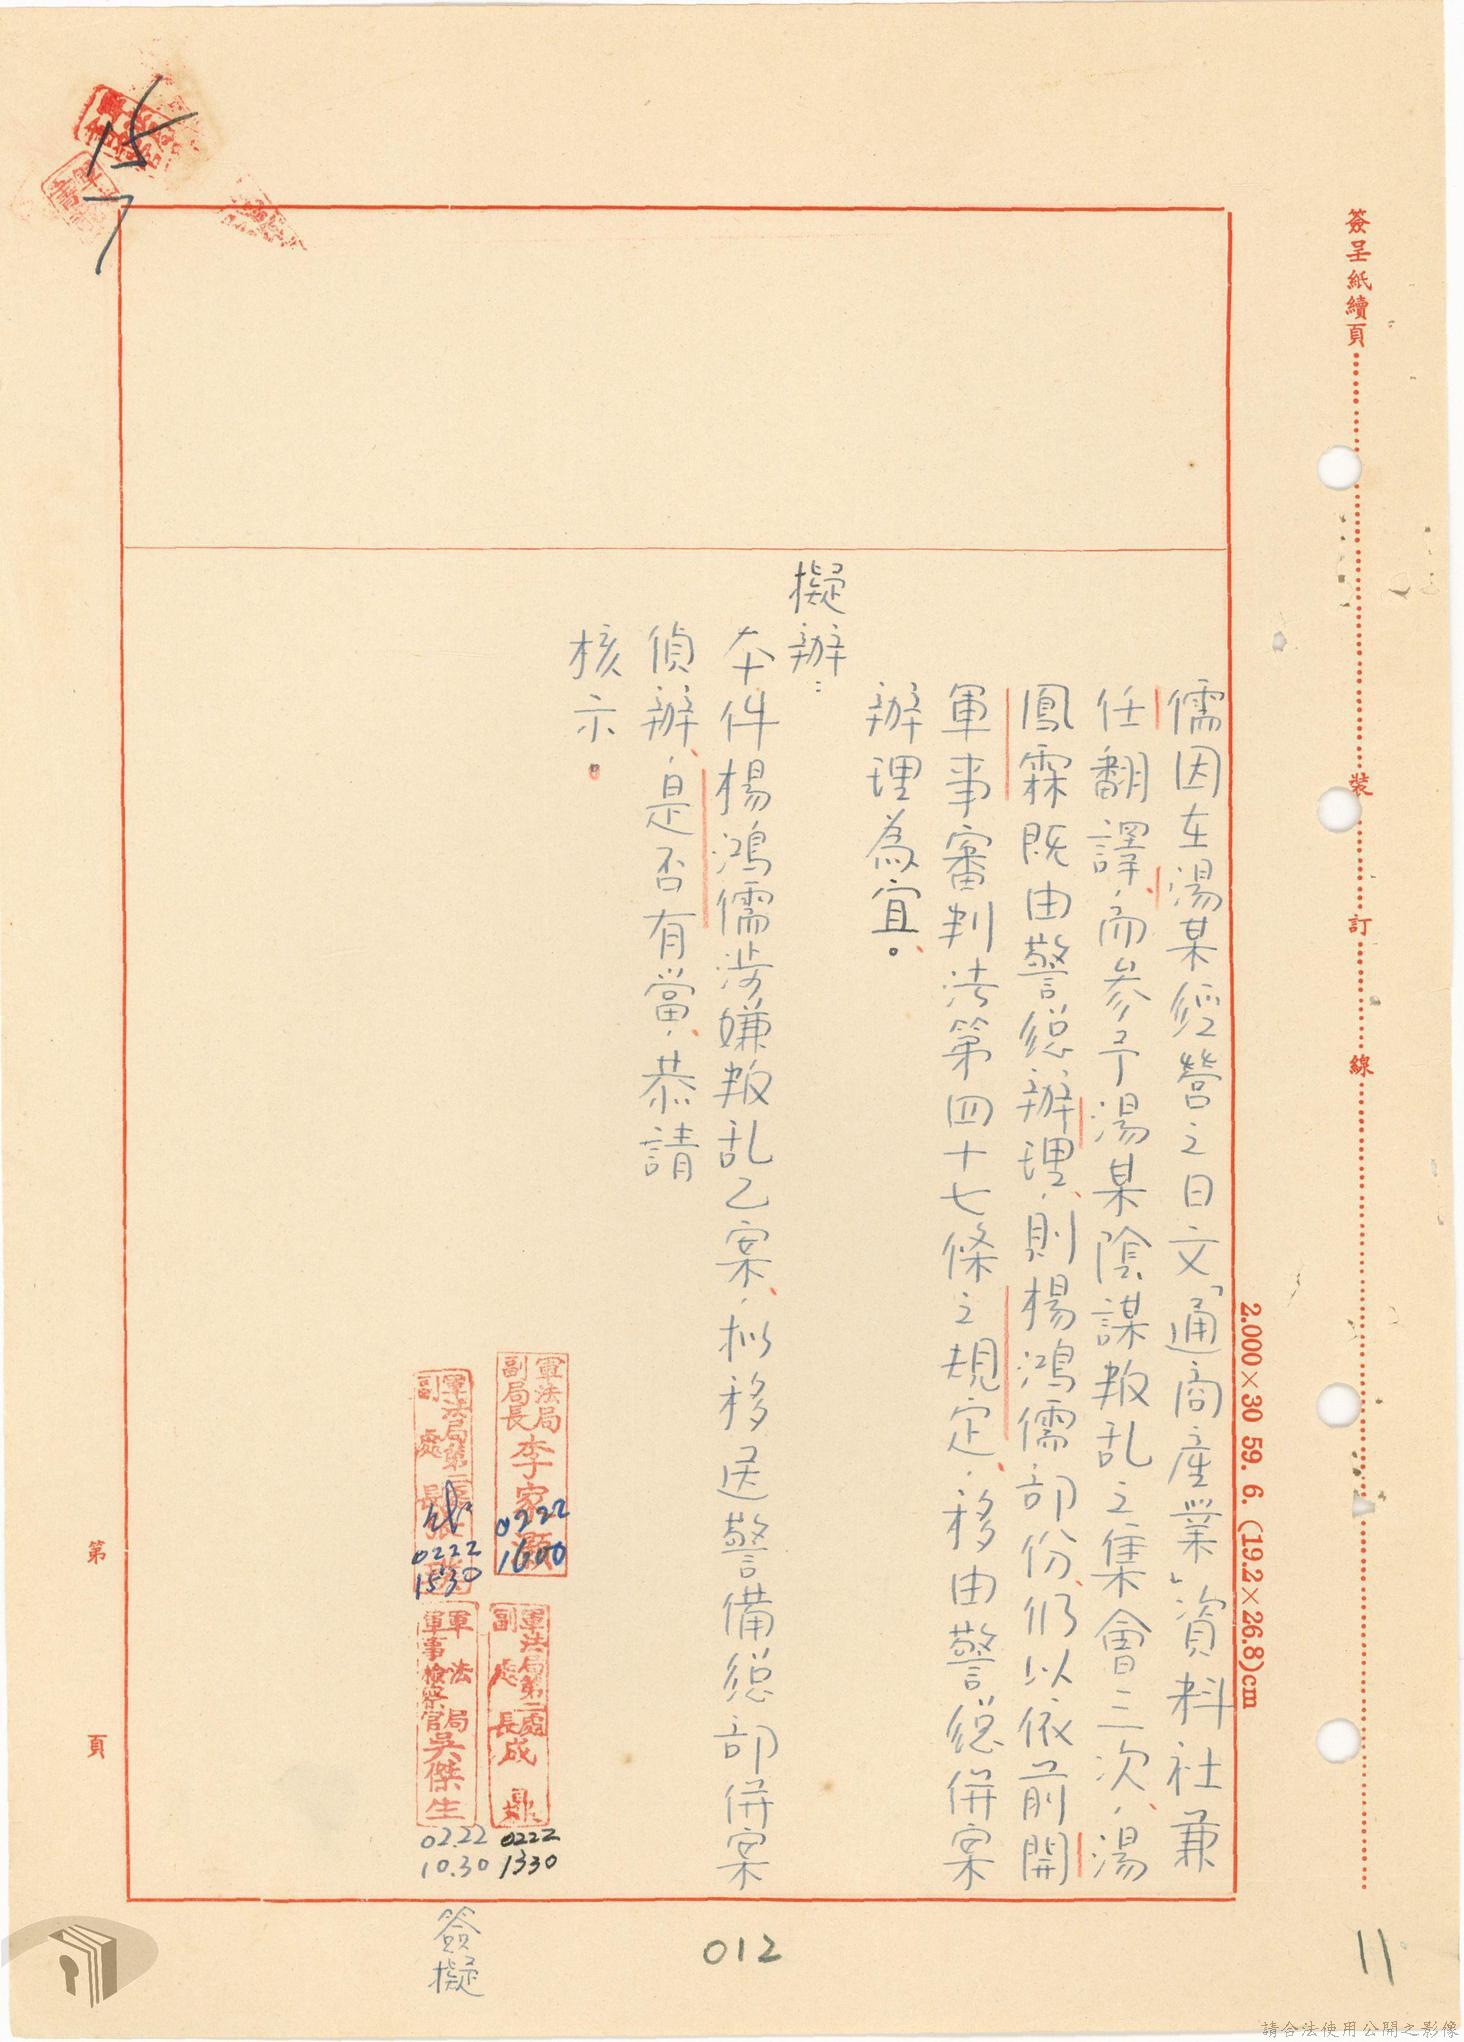 簽呈紙續頁
裝
訂
線
2.000×30 59. 6. (19.2×26.8)cm
儒因在湯某經營之日文「通商產業」資料社兼
任翻譯，而參予湯某陰謀叛乱之集會三次，湯
鳳霖既由警總辦理，則楊鴻儒部份仍以依前開
軍事審判法第四十七條之規定，移由警總併案
辦理為宜。
擬辦：
本件楊鴻儒涉嫌叛乱乙案，拟移送警備總部併案
偵辦，是否有當，恭請
核示。
軍法局
副局長 李家灝
0222
1600
軍法局第二處
副處長 成鼎
0222
1330
軍法局第二處
副處長
0222
1530
軍法局
軍事檢察官 吳傑生
02.22
10.30
簽擬
第 頁
15
7
012
11
請合法使用公開之影像